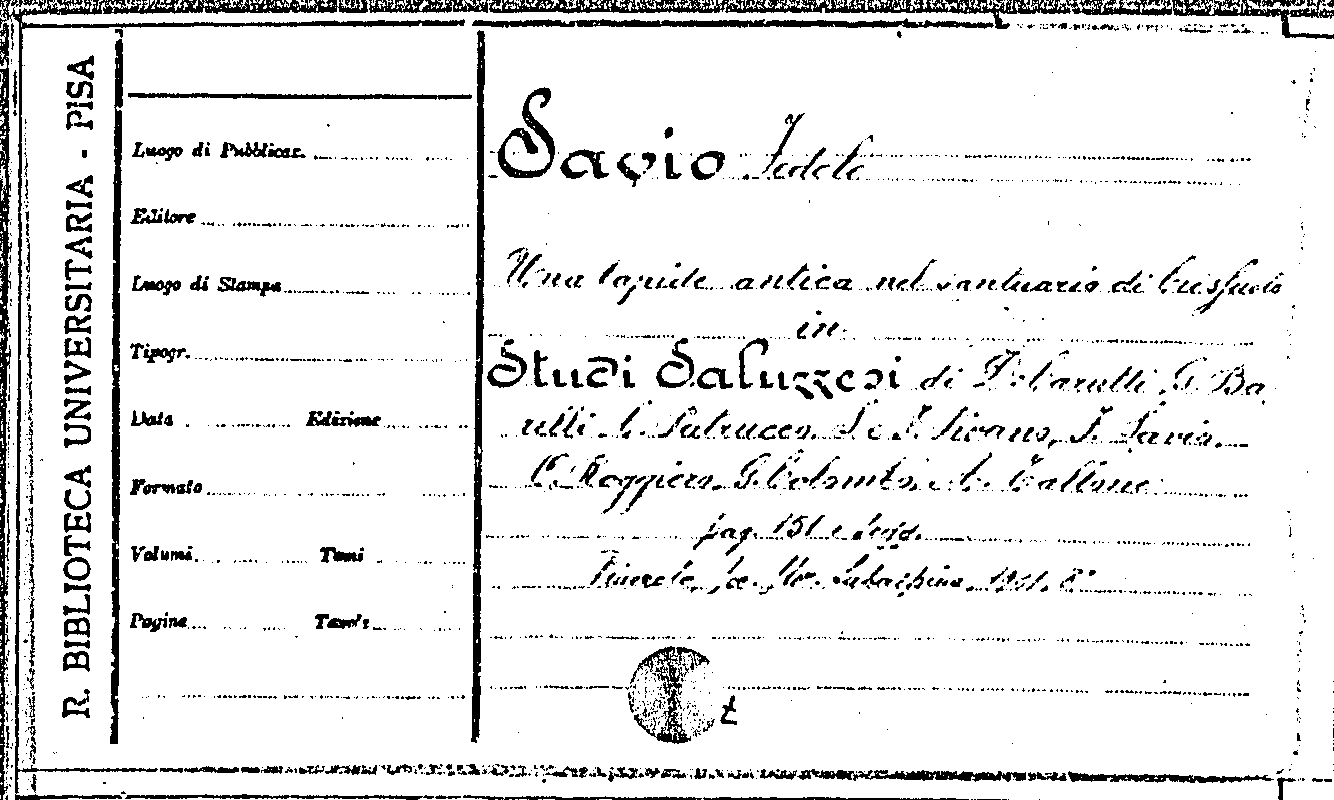 R. BIBLIOTECA UNIVERSITARIA - PISA
Luogo di Pubblicaz.
Editore
Luogo di Stampa
Tipogr.
Data Edizione
Formato
Volumi Tomi
Pagine Tavole
Savio Fedele
Una lapide antica nel santuario di Crissolo
in
Studi Saluzzesi di D. Chiattone, G. Ba
relli C. Patrucco, L. e F. Savio,
O. Roggiero, G. Colombo, A. Tallone
pag. 151 e segg.
Pinerolo, Soc. Stor. Subalpina, 1901. 8°
t